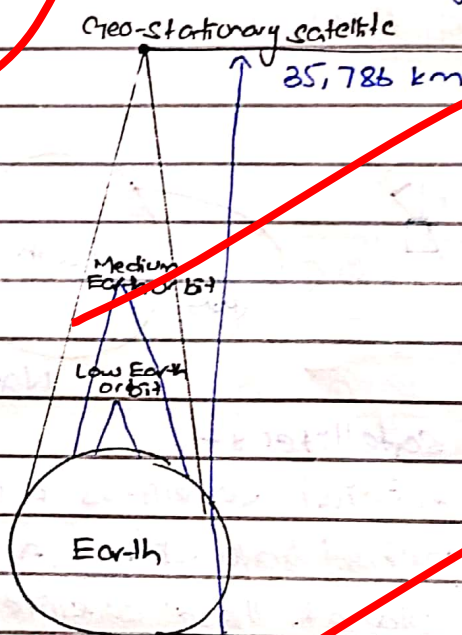 Geo-stationary satellite
35,786 km
Medium
Earth orbit
Low Earth
orbit
Earth